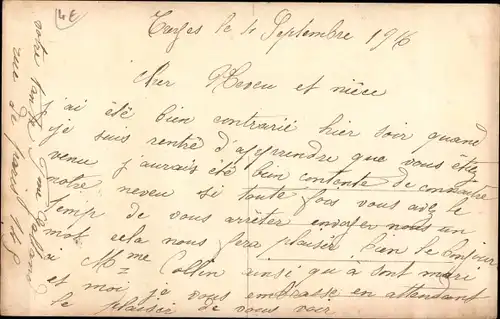 4E
le 4 Septembre 1916
Cher Neveu et nièce
j'ai été bien contrarié hier soir quand
je suis rentré d'apprendre que vous étiez
venu j'aurais été bien contente de connaitre
notre neveu si toute fois vous avez le
temp de vous arrêter envoyer nous un
mot cela nous fera plaisir bien le bonjour
à Mme Collin ainsi qu'à son mari
et moi je vous embrasse en attendant
le plaisir de vous voir
votre tante
rue de 148